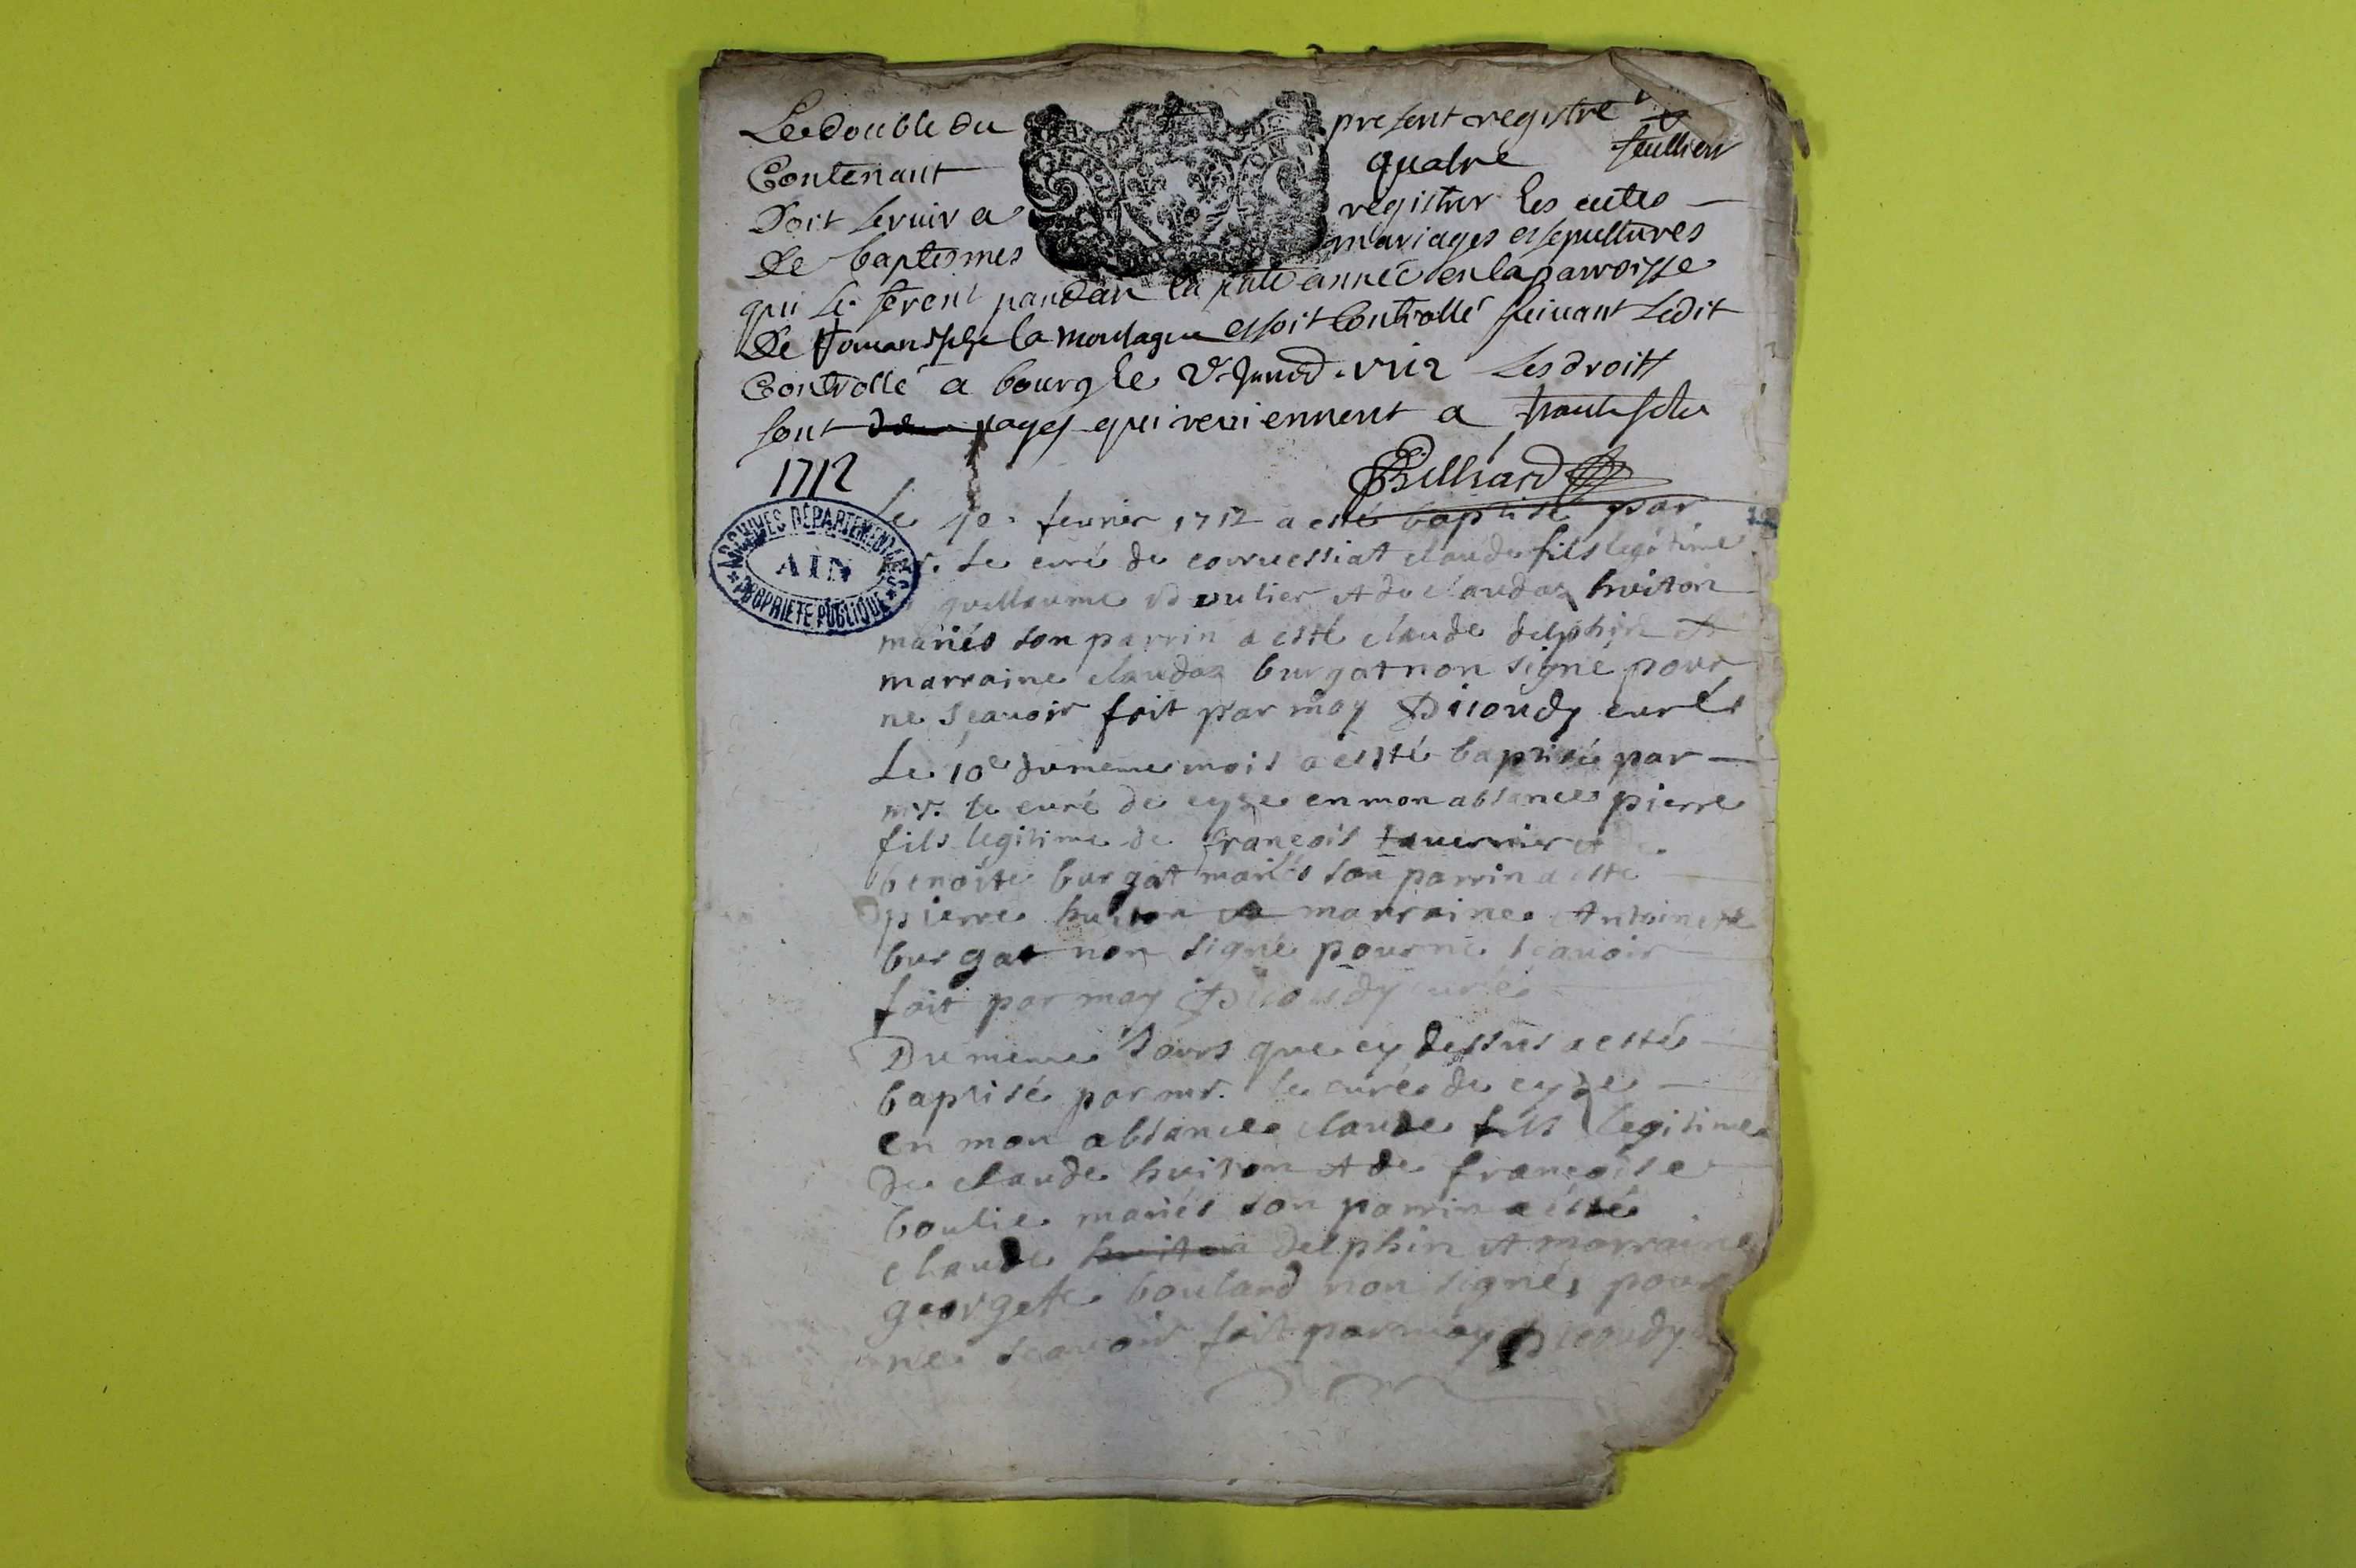 Le double du present registre
Contenant quatre feuillets
Doit servir a registrer les actes
De baptesmes mariages et sepultures
qui se feront pandan la pnte année en la parroisse
De la montagne et soit Controllé suivant Ledit
Controllé a bourg le Les droitt
sont payes qui reviennent a
1712 Billiard
Le 10. feurier 1712 a esté baptisé par
mr. Le curé de corvessiat claude fils legitime
guillaume boulier et de claudaz huiton
mariés son parrin a esté claude delphin et
marraine claudaz burgat non signé pour
ne sçavoir fait par moy Dicoudy curé
ARCHIVES DÉPARTEMENTALES
AIN
PROPRIÉTÉ PUBLIQUE
Le 10e du meme mois a estté baptisé par
mr. le curé de eyze en mon absance pierre
fils legitime de françois tavernier et de
benoite burgat mariés son parrin a esté
pierre huiton et marraine Antoinette
burgat non signé pour ne scavoir
fait par moy Dicoudy curé
Du meme Jours que cy dessus a esté
baptisé par mr. le curé de eyze
en mon absance claude fils legitime
de claude huiton et de françoise
boulie mariés son parrin a esté
claude huiton delphin et marraine
georgette boulard non signés pour
ne scavoir fait par moy Dicoudy